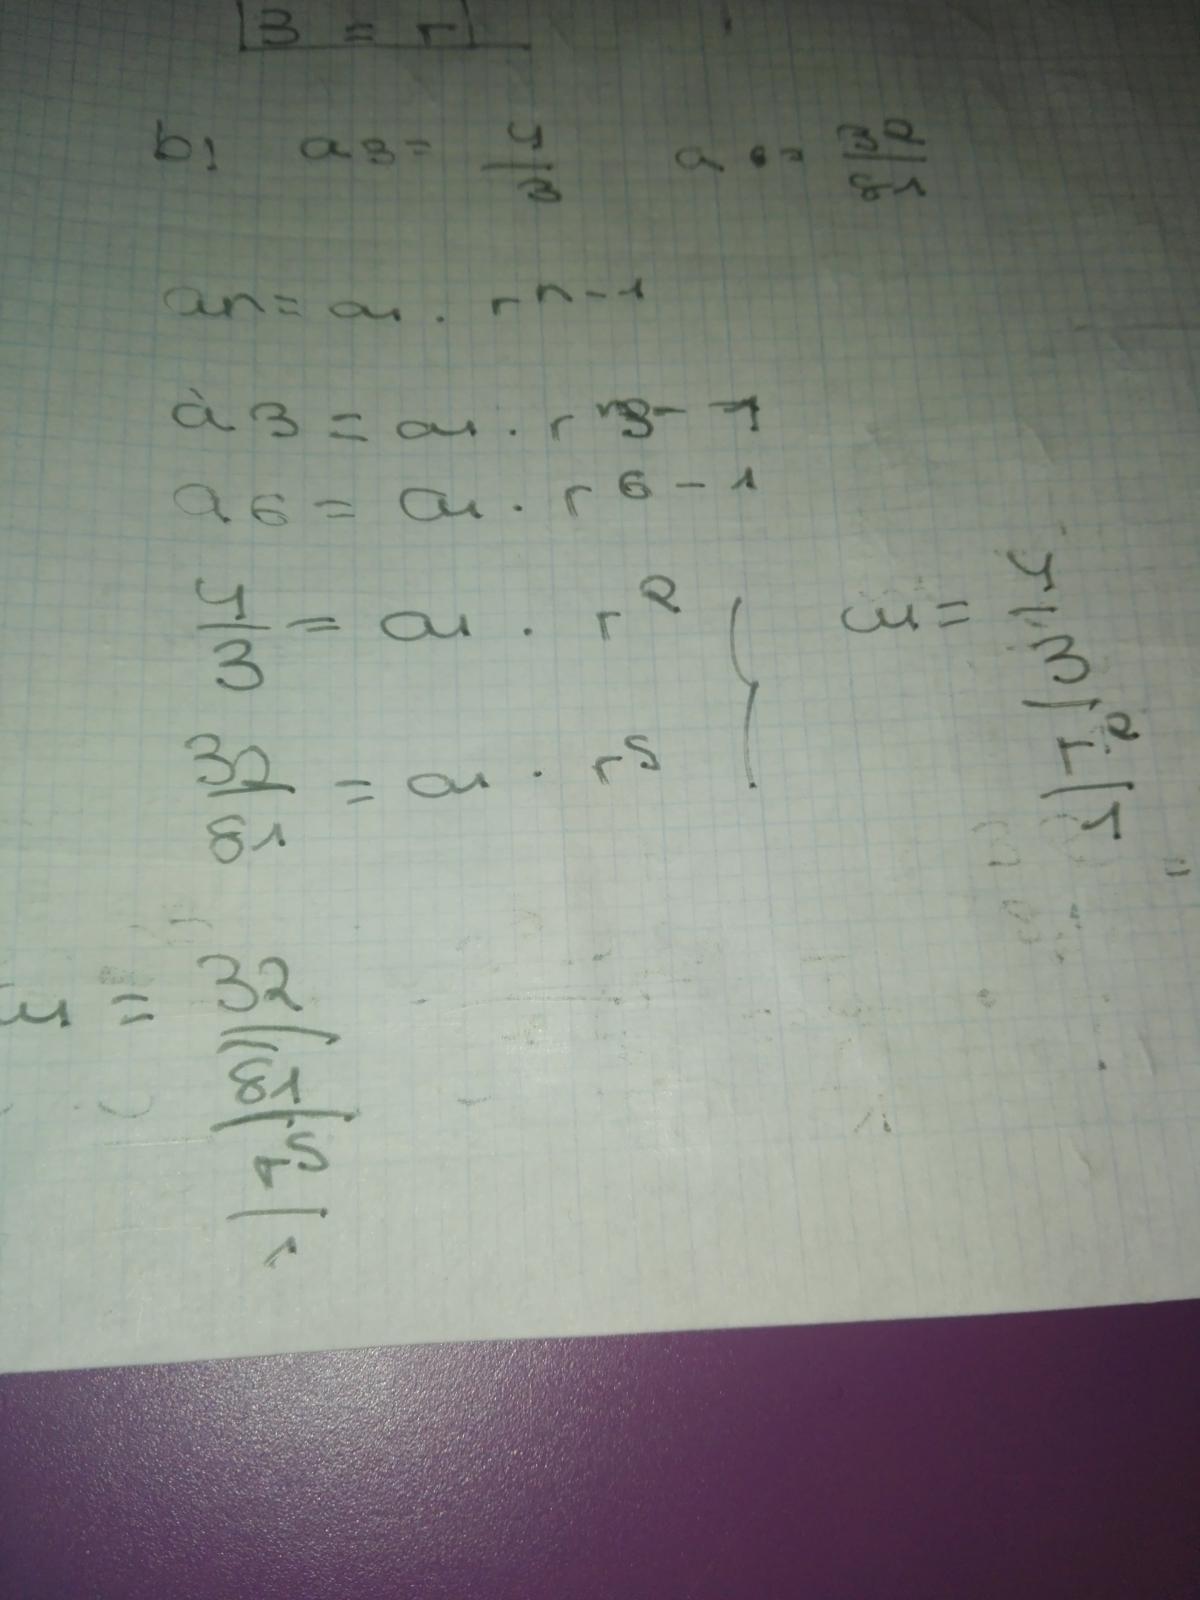 3 = r
b) a3 = 4/3 a6 = 32/81
an = a1 · r^n-1
a3 = a1 · r^3-1
a6 = a1 · r^6-1
4/3 = a1 · r^2
32/81 = a1 · r^5
a1 = 4/3/r^2/1 =
a1 = 32/81/r^5/1